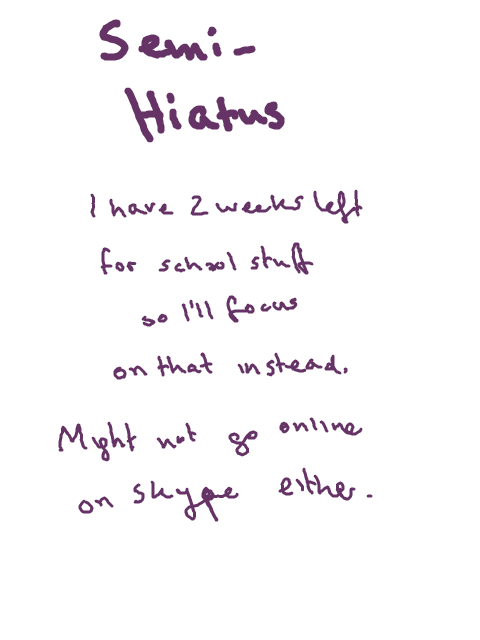 Semi-
Hiatus
I have 2 weeks left
for school stuff
so I'll focus
on that instead.
Might not go online
on skype either.